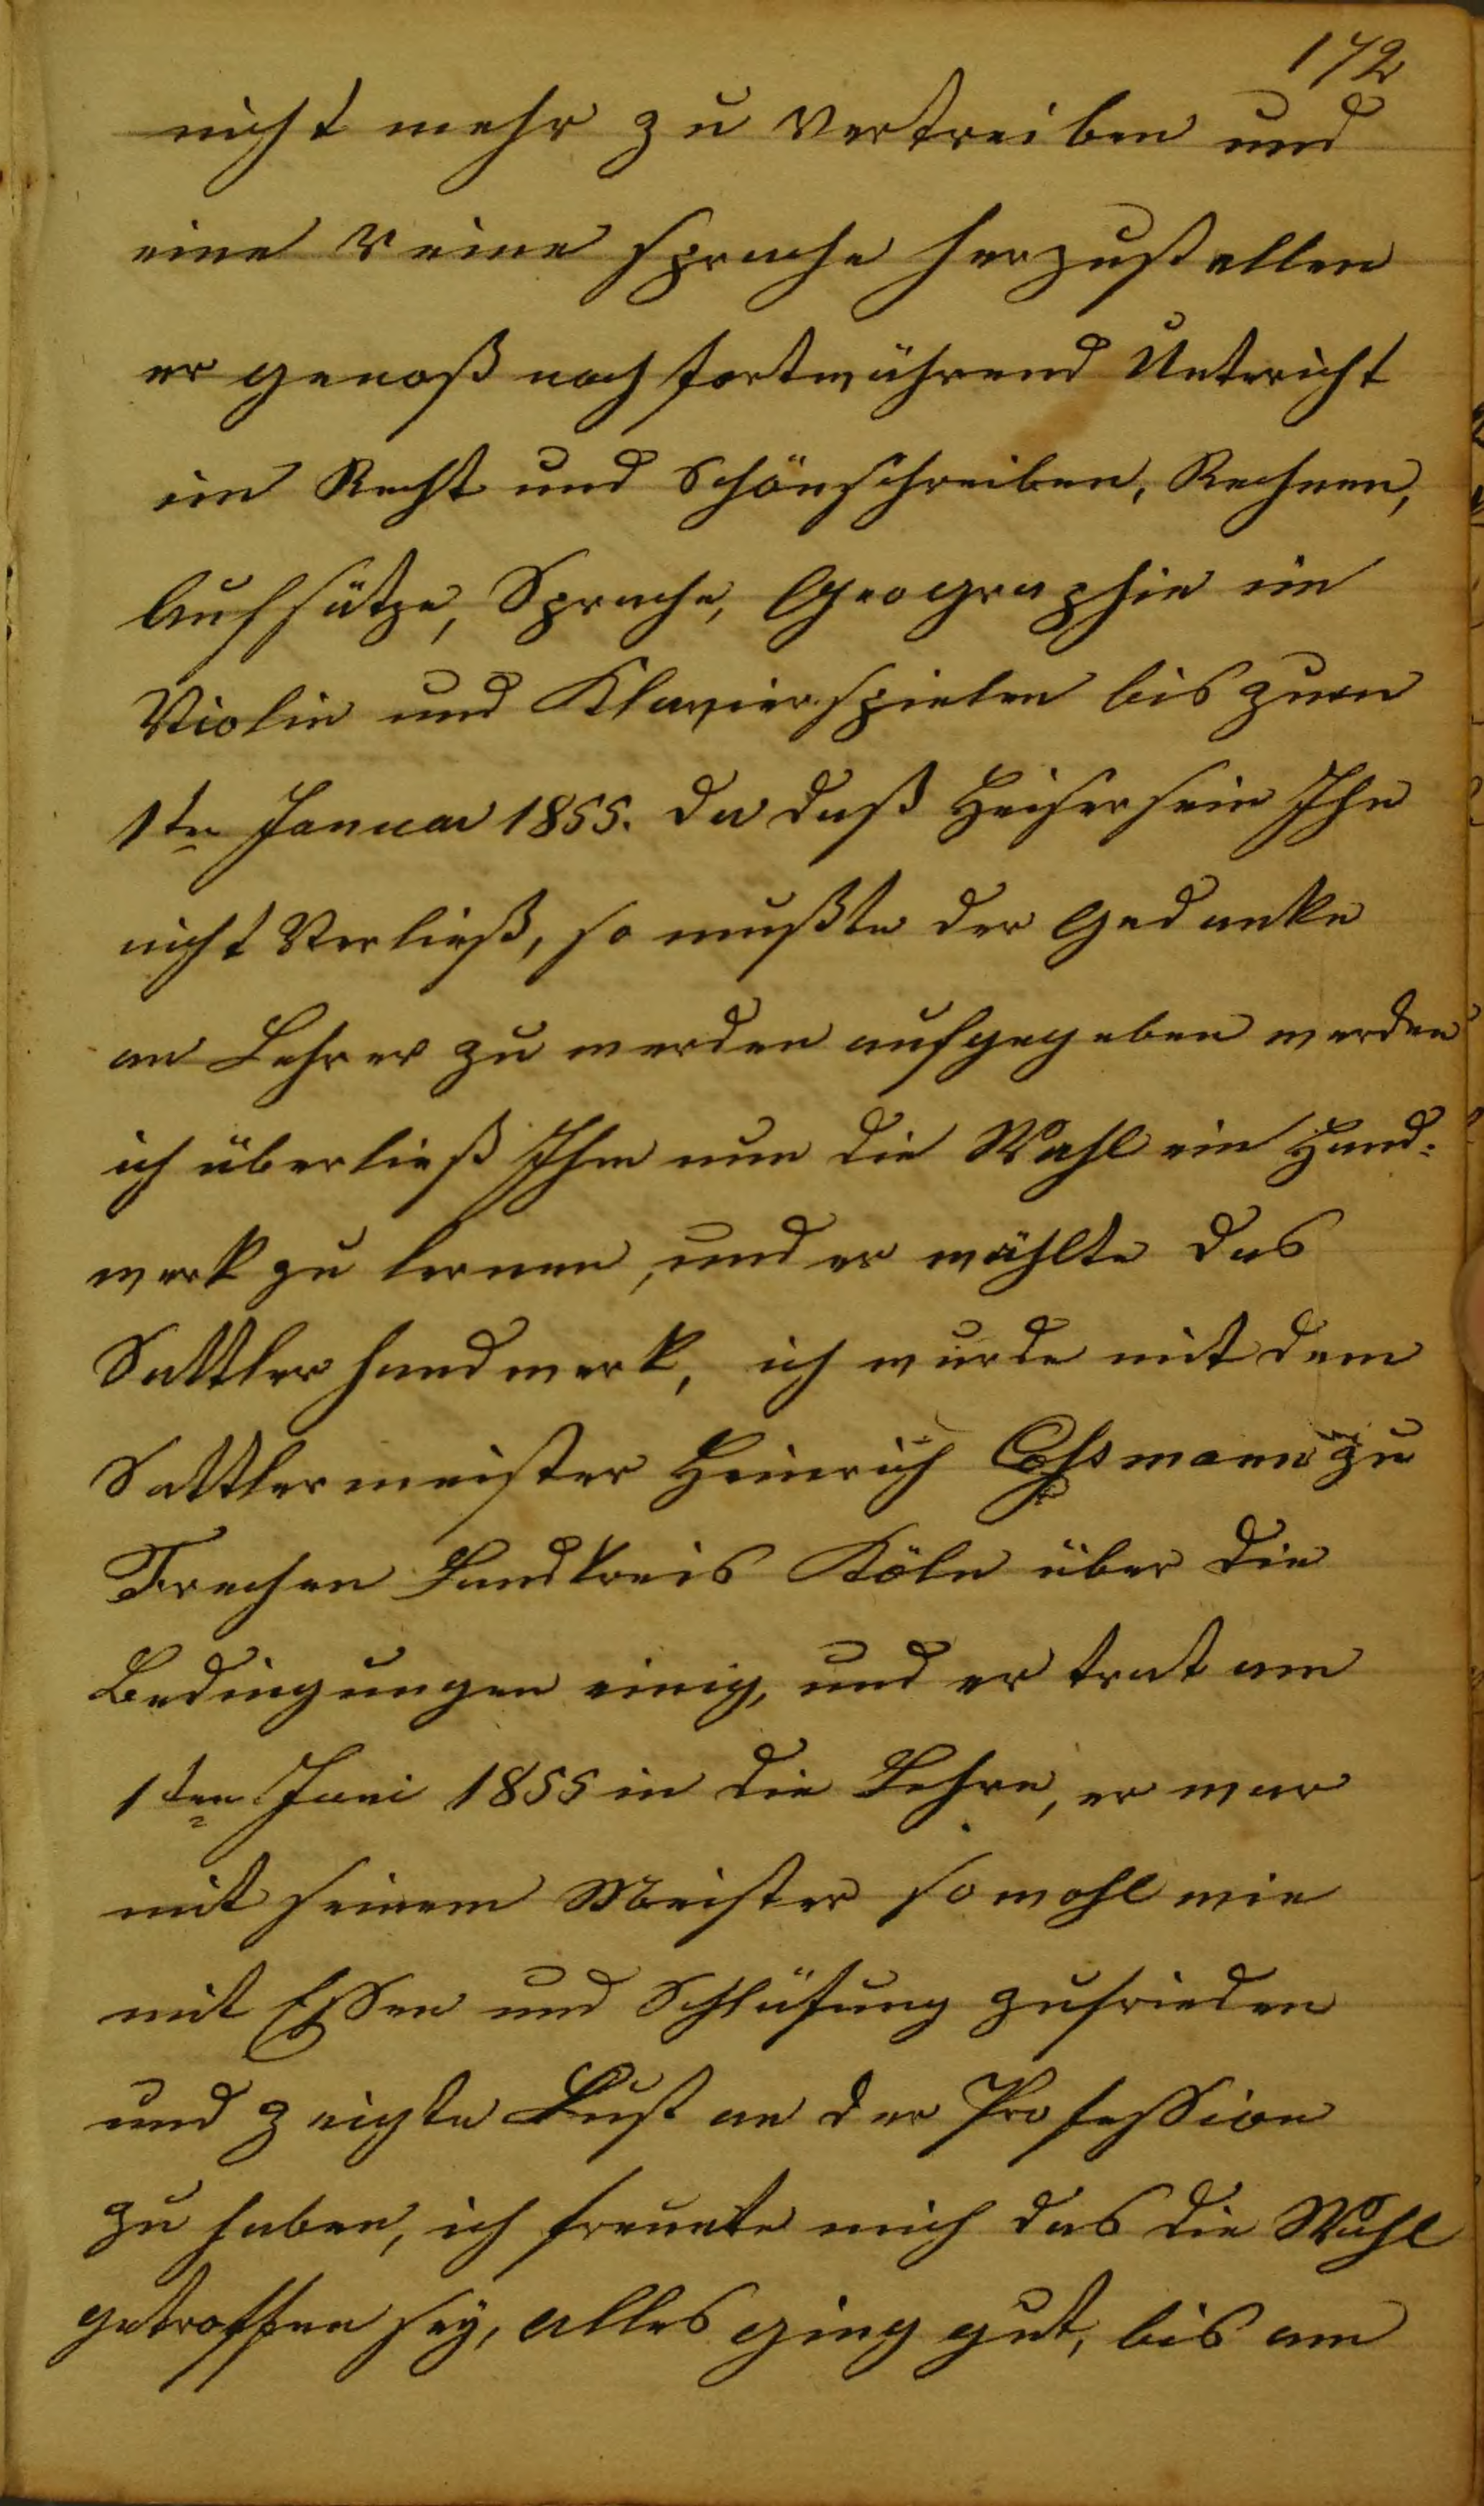 172
nicht mehr zu vertreiben und
eine reine sprache herzustellen
er genoß noch fortwährend Unterricht
im Recht und Schönschreiben, Rechnen,
Aufsätze, Sprache, Geographie im
Violin und Klavierspielen bis zum
1ten Januar 1855. da daß Heisersein Ihn
nicht Verließ, so mußte der Gedanke
an Lehrer zu werden aufgegeben werden
ich überließ Ihm nun die Wahl ein Hand-
werk zu lernen, und er wählte das
Sattlerhandwerk, ich wurde mit dem
Sattlermeister Heinrich Cossmann zu
Frechen Landkreis Köln über die
Bedingungen einig, und er trat am
1ten Juni 1855 in die Lehre, er war
mit seinem Meister sowohl wie
mit Essen und Schlafung zufrieden
und zeigte Lust an der Profession
zu haben, ich freuete mich das die Wahl
getroffen sey, alles ging gut, bis am